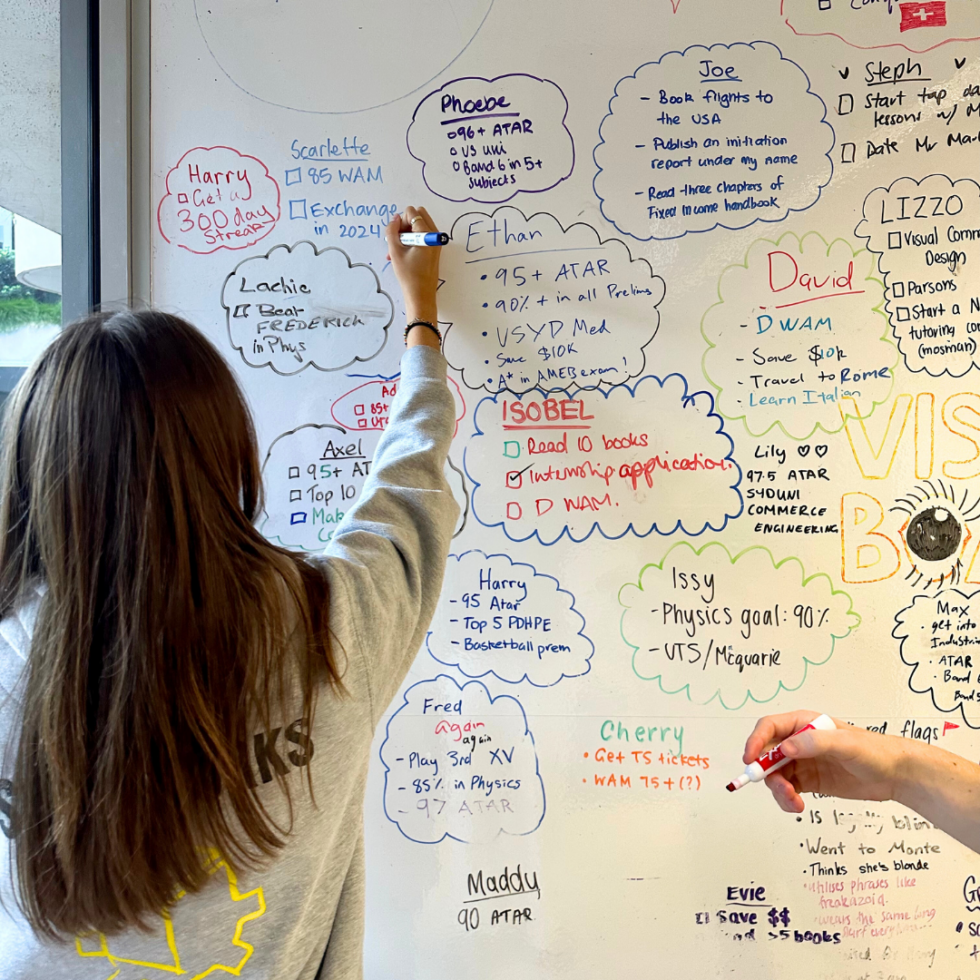 Harry
Get a
300 day
Streak
Scarlette
85 WAM
Exchange
in 2024
Phoebe
96+ ATAR
US uni
Band 6 in 5+
subjects
Joe
- Book flights to
the USA
- Publish an initiation
report under my name
- Read three chapters of
Fixed Income handbook
Steph
Start tap
lessons w/
Date Mr
Lachie
Beat
FREDERICH
in Phys
Ethan
• 95+ ATAR
• 90% + in all Prelims
• USYD Med
• Save $10K
• A* in AMEB exam!
David
- D WAM
- Save $10k
- Travel to Rome
- Learn Italian
LIZZO
Visual Comm
Design
Parsons
Start a
tutoring
(mosman)
Axel
95+
Top 10
ISOBEL
Read 10 books
Internship application.
D WAM.
Lily ♡♡
97.5 ATAR
SYDUNI
COMMERCE
ENGINEERING
VIS
B
Harry
- 95 Atar
- Top 5 PDHPE
- Basketball prem
Issy
- Physics goal: 90%
- UTS/Mcquarie
Max
• get into
• ATAR
• Band
Fred
again
again
- Play 3rd XV
- 85% in Physics
- 97 ATAR
Cherry
• Get TS tickets
• WAM 75+(?)
flags
• Is
• Went to Monte
• Thinks she's blonde
• utilises phrases like
freakazoid.
wears the same
Maddy
90 ATAR
Evie
Save $$
>5 books
KS